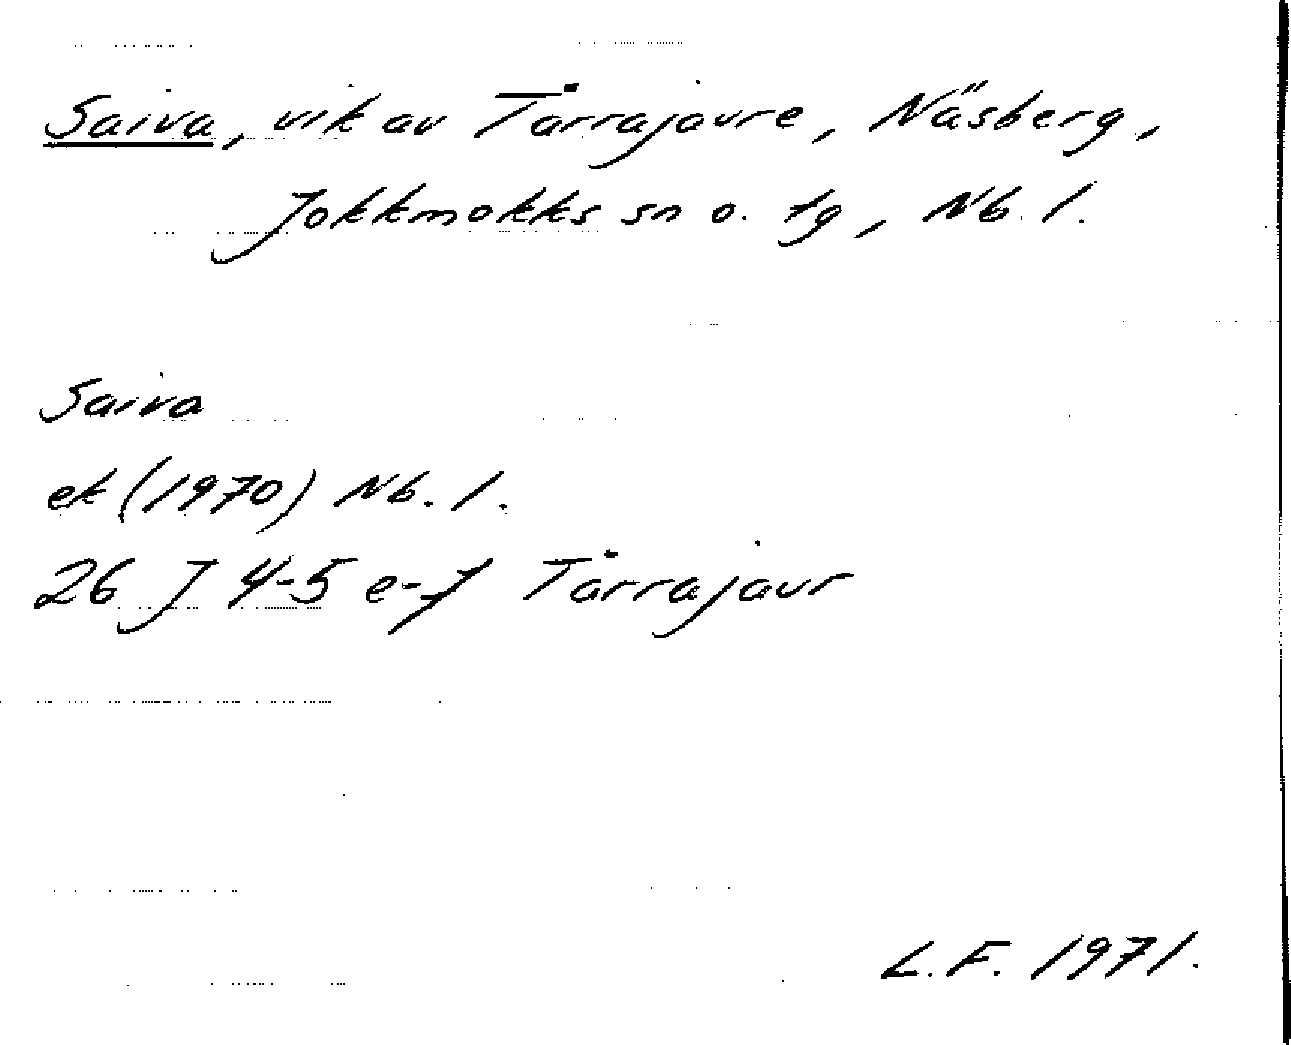 Saiva, vik av Tårrajaure, Näsberg,
Jokkmokks sn o. tg, Nb. l.
Saiva
ek (1970) Nb. l.
26 J 4-5 e-f Tårrajaur
L.F. 1971.